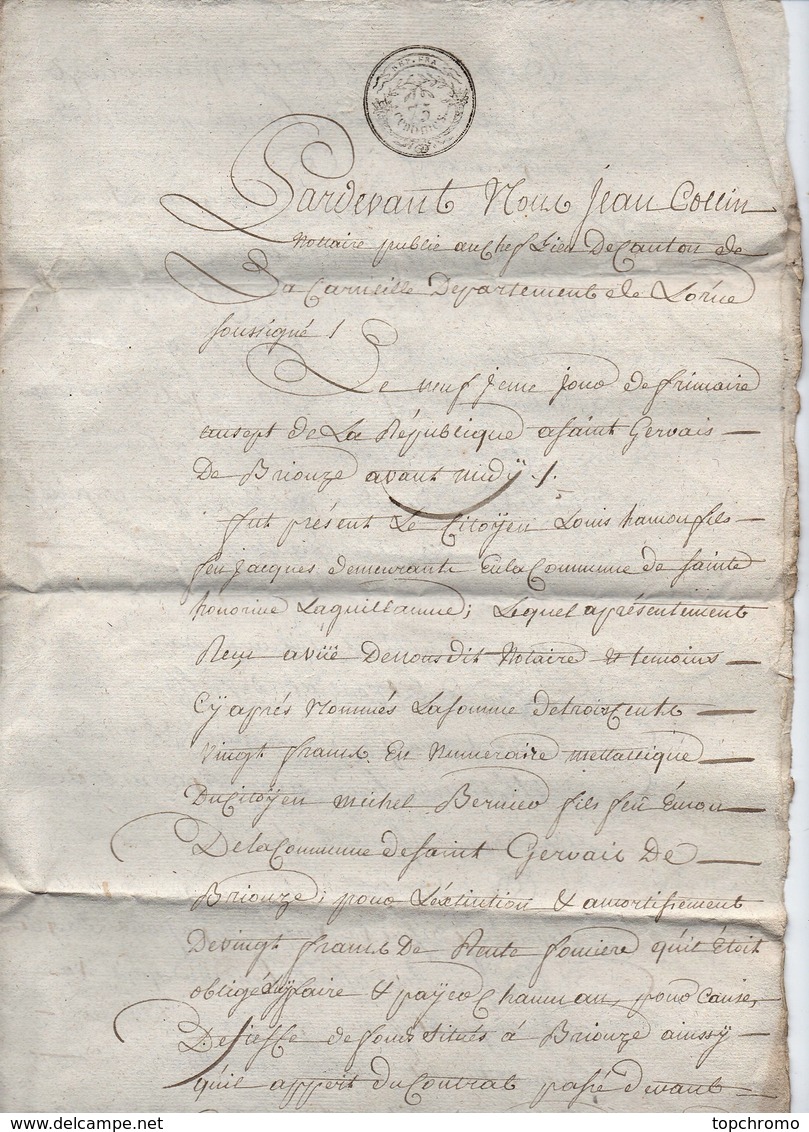 REP. FRA.
75
CENTIMES
Pardevant Nous Jean Collin
Nottaire public au Chef Lieu De Canton de
La Carneille Departement de Lorne
soussigné /
Le neuf ieme jour de frimaire
an sept de La République a saint Gervais —
De Briouze avant midÿ ./.
fut présent Le Citoÿen Louis hamon fils —
feu jacques demeurante En la Commune de sainte
honorine Laguillaume; Lequel aprésentement
Reçu a vüe De nous dit Notaire & temoins —
Cÿ aprés Nommés La somme de trois Cents —
vingt francs En Numeraire mettallique —
Du Citoÿen michel Bernier fils feu —
De la Commune de saint Gervais De —
Briouze; pour L'extintion & amortissement
De vingt francs De Rente fonciere qu'il Étoit
obligé Luÿ faire & paÿer Chacun an, pour Cause,
De fieffe de fonds situés á Briouze ainssÿ —
qu'il appert du Contrat passé devant —
topchromo